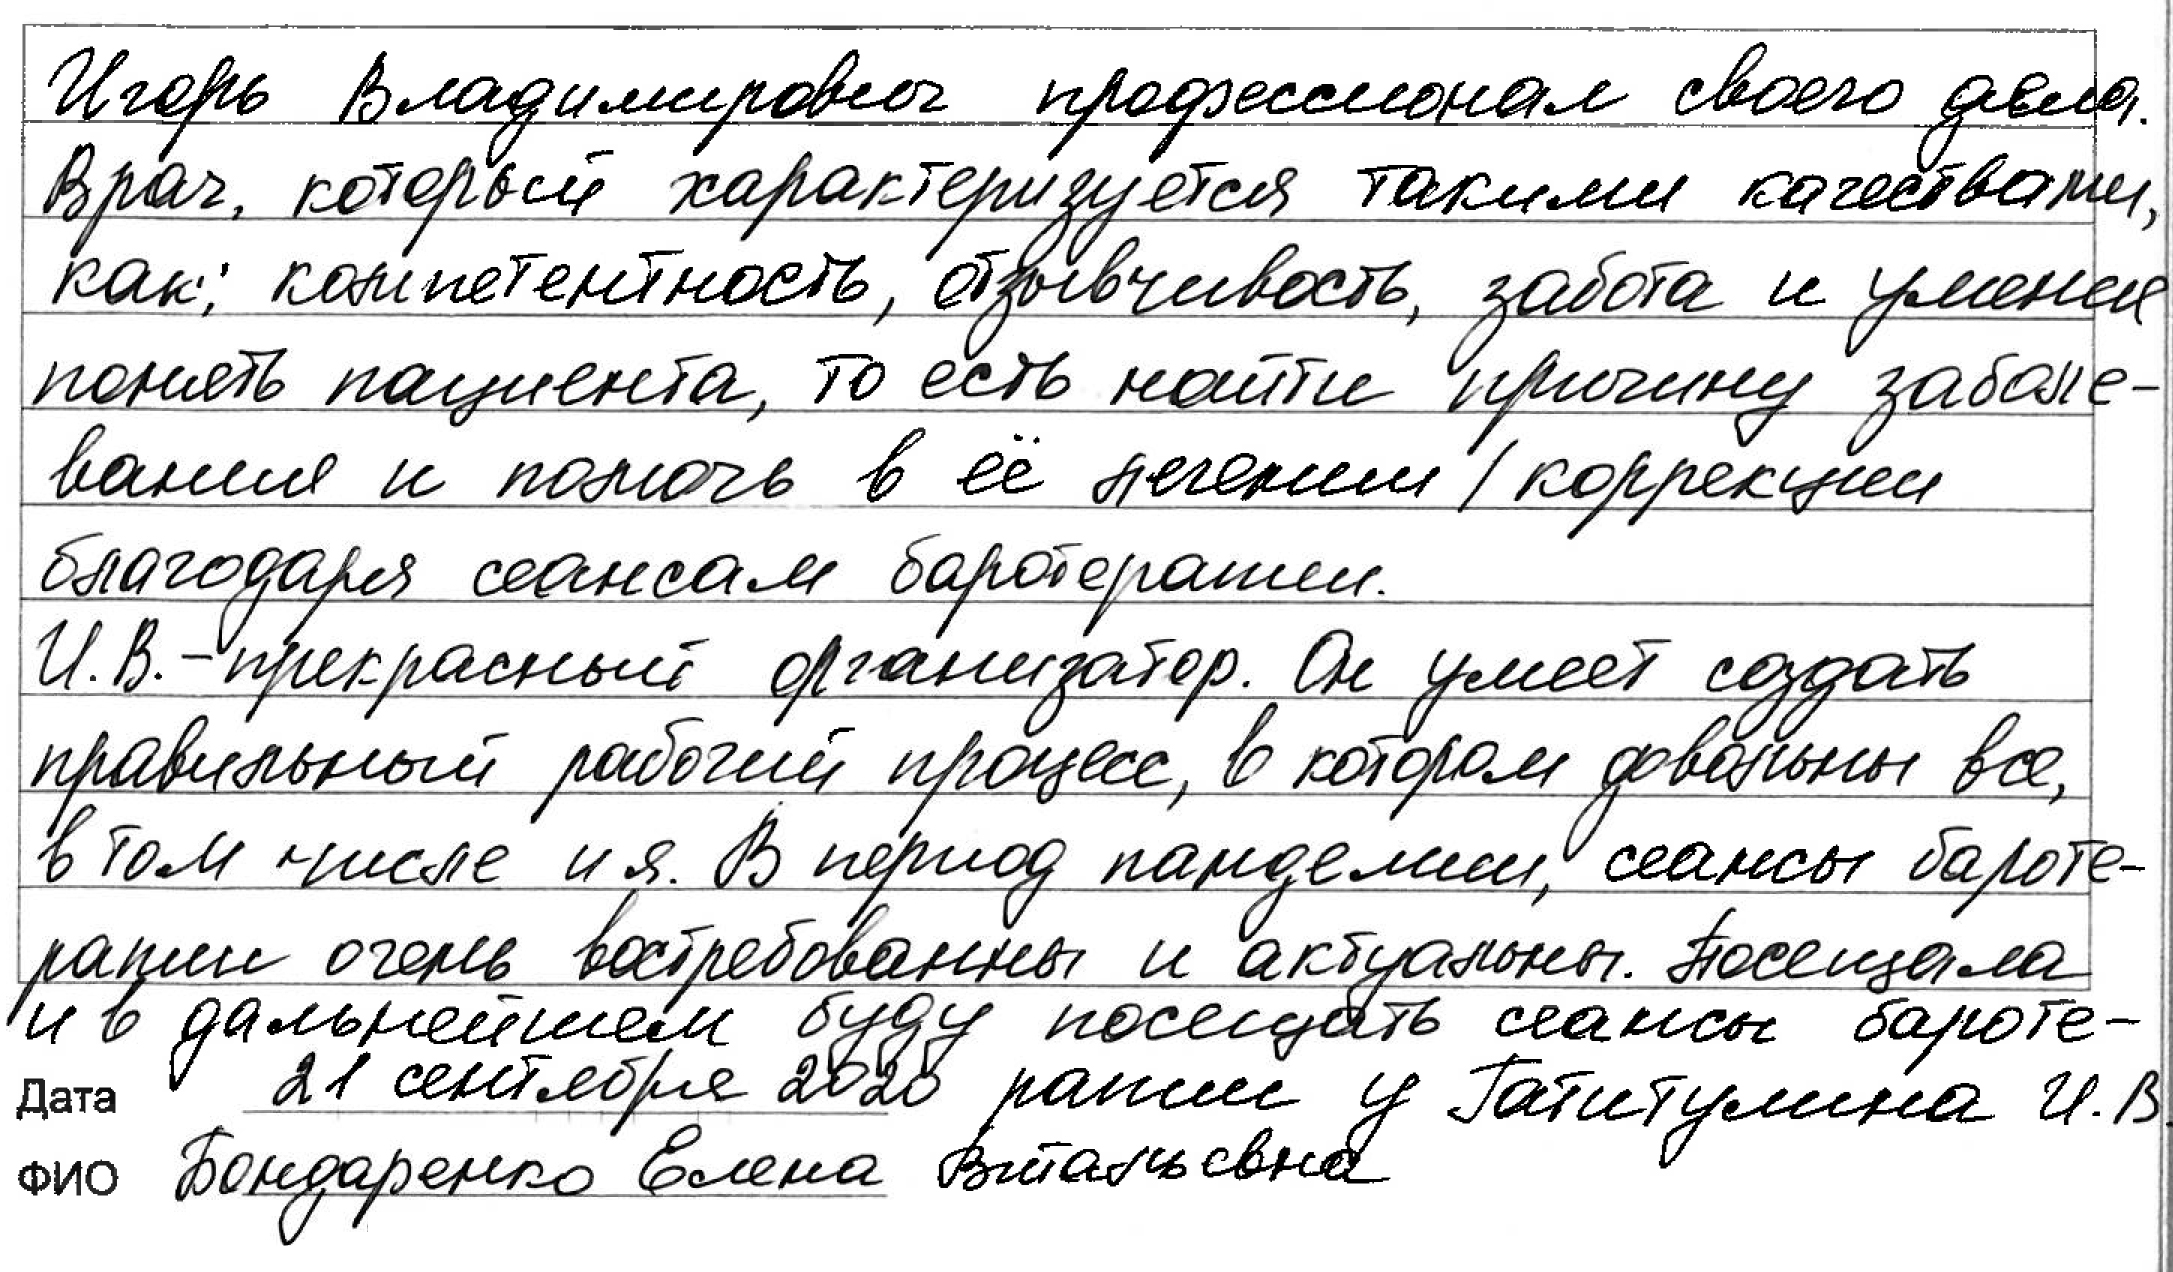 Игорь Владимирович профессионал своего дела.
Врач, который характеризуется такими качествами,
как: компетентность, отзывчивость, забота и умение
понять пациента, то есть найти причину заболе-
вания и помочь в её лечении / коррекции
благодаря сеансам баротерапии.
И.В. - прекрасный организатор. Он умеет создать
правильный рабочий процесс, в котором довольны все,
в том числе и я. В период пандемии, сеансы бароте-
рапии очень востребованны и актуальны. Посещала
и в дальнейшем буду посещать сеансы бароте-
Дата 21 сентября 2020 рапии у Гатитулина И.В.
ФИО Бондаренко Елена Витальевна